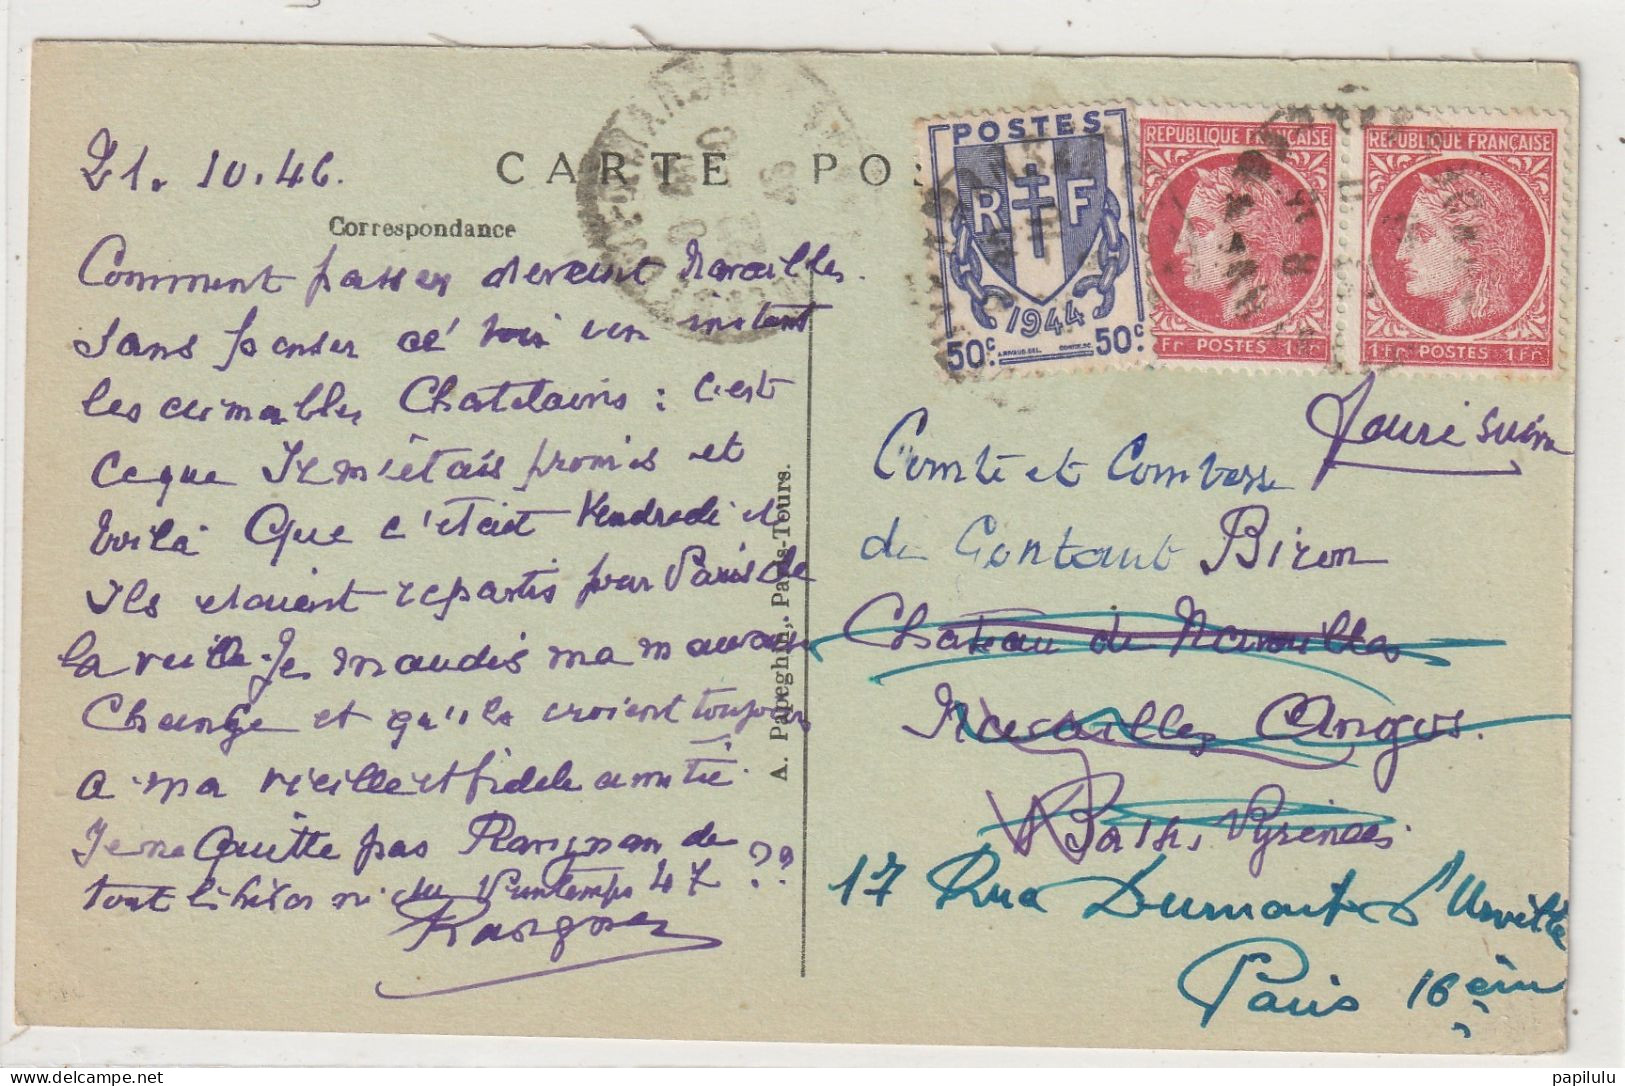 21. 10. 46.
CARTE PO
Correspondance
Comment passer devant Navailles
sans penser un instant
les aimables Chatelains : c'est
ce que Je m'étais promis et
voilà que c'était Vendredi et
ils etaient repartis pour Paris de
la veille. Je maudis ma mauvaise
Change et qu'ils croient toujours
a ma vieille et fidele amitié.
Je ne Quitte pas de
tout l'hiver ni du Printemps 47 ??
A. Papeghin, Paris-Tours.
POSTES
RF
1944
50c 50c
REPUBLIQUE FRANÇAISE
Fr POSTES 1 Fr
REPUBLIQUE FRANÇAISE
1 Fr POSTES 1 Fr
Faire suivre
Comte et Comtesse
de Gontaut Biron
Chateau de Navailles
Navailles Angos.
Basses Pyrénées
17 Rue Dumont d'Urville
Paris 16 ème
papilulu